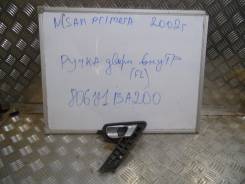 NISAN PRIMERA 2002г
Ручка двери внутр
(FL)
80671 BA200